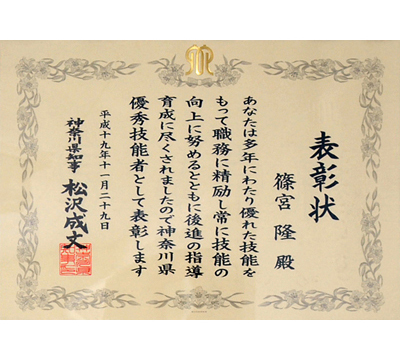 表彰状
篠宮 隆 殿
あなたは多年にわたり優れた技能を
もって職務に精励し常に技能の
向上に努めるとともに後進の指導
育成に尽くされましたので神奈川県
優秀技能者として表彰します
平成十九年十一月二十九日
神奈川県知事 松沢成文